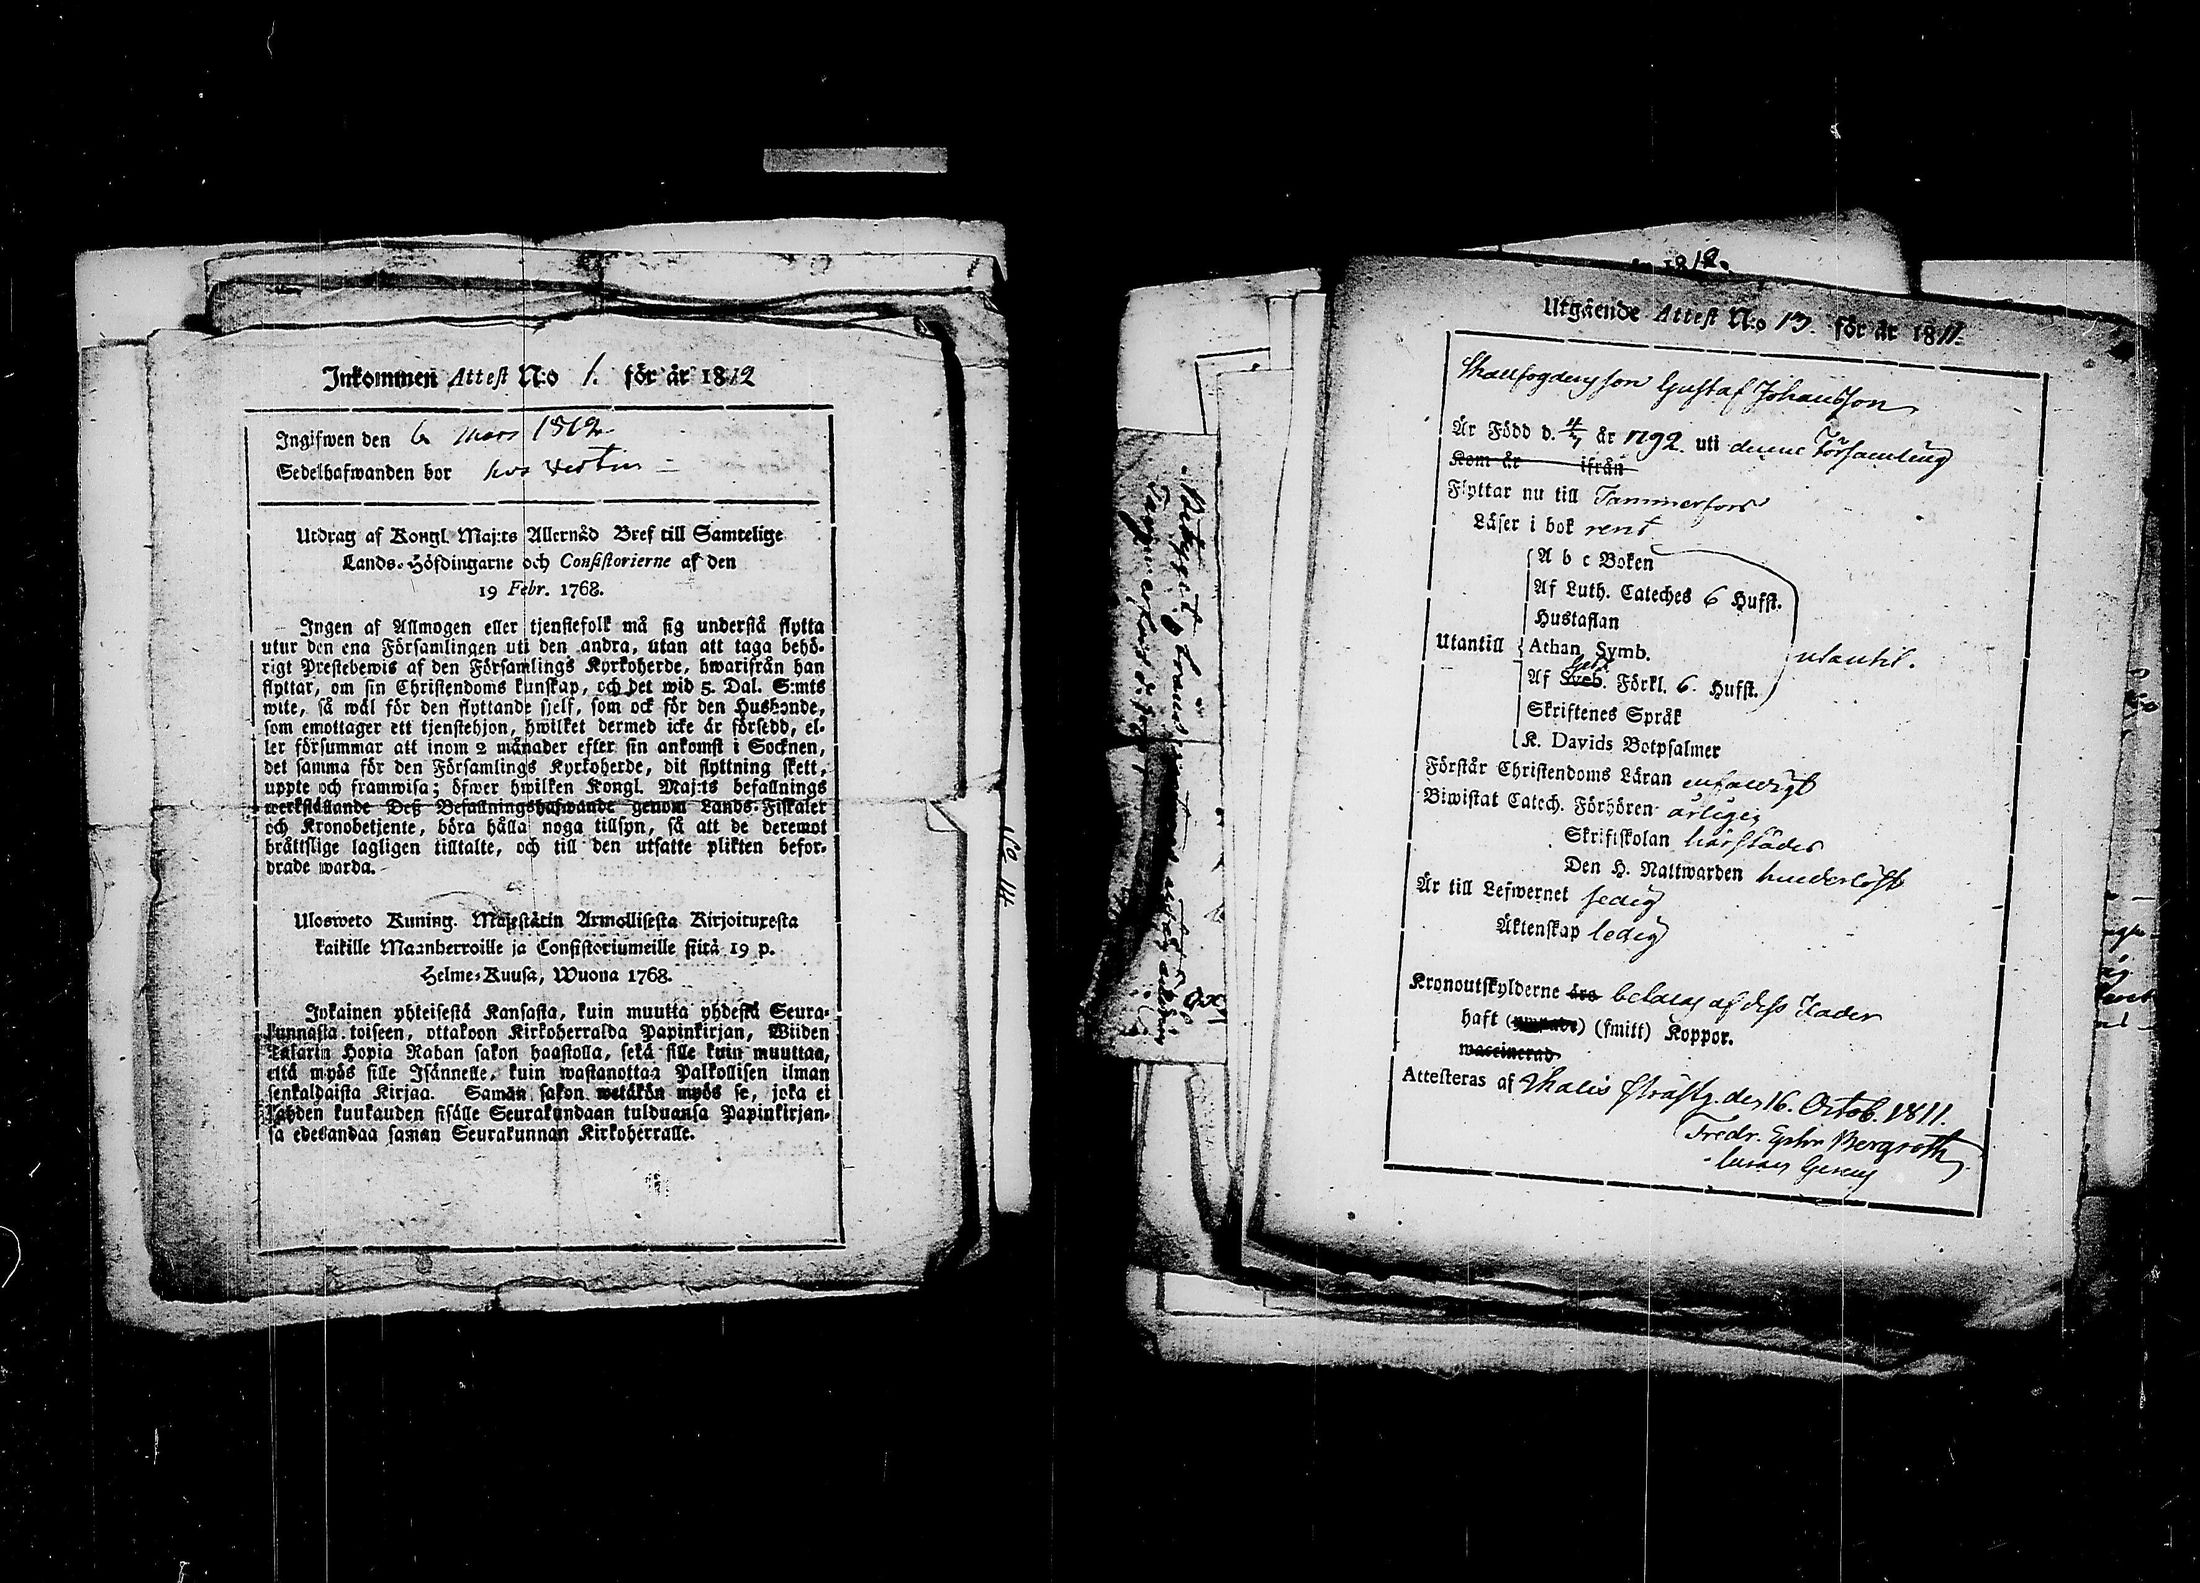 Inkommen Attest N:o 1. för år 1812
Ingifwen den 6 Mars 1812
Sedelhafwanden bor hos
Utdrag af Kongl. Maj:ts Allernåd Bref till Samtelige
Lands-Höfdingarne och Consistorierne af den
19 Febr. 1768.
Ingen af Allmogen eller tjenstefolk må sig understå flytta
utur den ena Församlingen uti den andra, utan att taga behö-
rigt Prestebewis af den Församlings Kyrkoherde, hwarifrån han
flyttar, om sin Christendoms kunskap, och det wid 5. Dal. S:mts
wite, så wäl för den flyttande sjelf, som ock för den Husbonde,
som emottager ett tjenstehjon, hwilket dermed icke är försedd, el-
ler försummar att inom 2 månader efter sin ankomst i Socknen,
det samma för den Församlings Kyrkoherde, dit flyttning skett,
uppte och framwisa; öfwer hwilken Kongl. Maj:ts befallnings
werkställande Deß Befallningshafwande genom Lands-Fiskaler
och Kronobetjente, böra hålla noga tillsyn, så att de deremot
brättslige lagligen tilltalte, och till den utsatte plikten befor-
drade warda.
Ulosweto Kuning. Majestätin Armollisesta Kirjoituxesta
kaikille Maanherroille ja Consistoriumeille siitä 19 p.
Helme-Kuusa, Wuona 1768.
Jokainen yhteisestä Kansasta, kuin muutta yhdestä Seura-
kunnasta toiseen, ottakoon Kirkoherralda Papinkirjan, Wiiden
Talarin Hopia Rahan sakon haastolla, sekä sille kuin muuttaa,
että myös sille Isännelle, kuin wastanottaa Palkollisen ilman
senkaldaista Kirjaa. Saman sakon wetäkön myös se, joka ei
kahden kuukauden sisälle Seurakundaan tulduansa Papinkirjan-
sa edesandaa saman Seurakunnan Kirkoherralle.
No 14
18 12.
Utgående Attest N:o 13. för år 1811.
Gustaf Johansson
Är Född d. 4/7 år 1792. uti denne Församling
Kom år ifrån
Flyttar nu till Tammerfors
Läser i bok rent
A b c Boken
Af Luth. Cateches 6 Hufst.
Hustaflan
Utantill Athan. Symb. utantil.
Af Sveb. Förkl. 6. Hufst.
Skriftenes Språk
K. Davids Botpsalmer
Förstår Christendoms Läran enfaldigt
Biwistat Catech. Förhören årligen
Skriftskolan härstädes
Den H. Nattwarden
Är till Lefwernet sedig
Äktenskap ledig
Kronoutskylderne äro betalas af dess Fader
haft (ympade) (smitt) Koppor.
waccinerad
Attesteras af Thalis Prästg. den 16. Octob. 1811.
Fredr. Ephr. Bergroth